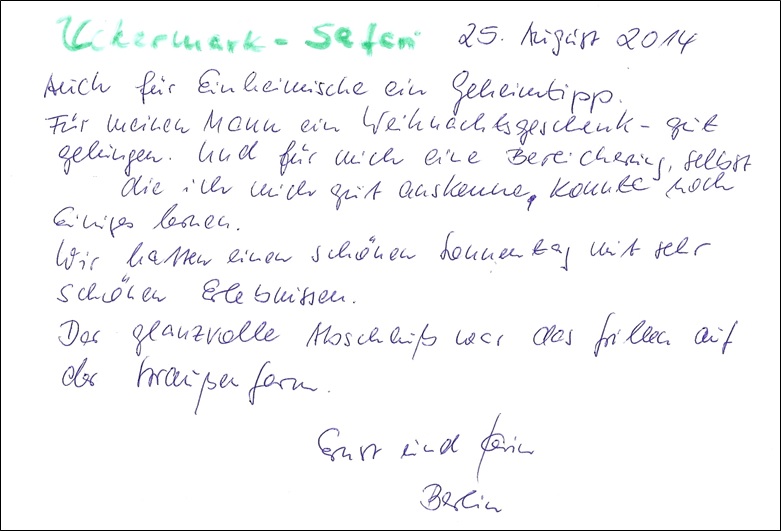 Uckermark - Safari 25. August 2014
Auch für Einheimische ein Geheimtipp.
Für meinen Mann ein Weihnachtsgeschenk - gut
gelungen. Und für mich eine Bereicherung, selbst
die ich mich gut auskenne, konnte noch
Einiges lernen.
Wir hatten einen schönen Sonnentag mit sehr
schönen Erlebnissen.
Der glanzvolle Abschluß war das Grillen auf
der Straußenfarm.
Ernst und
Berlin